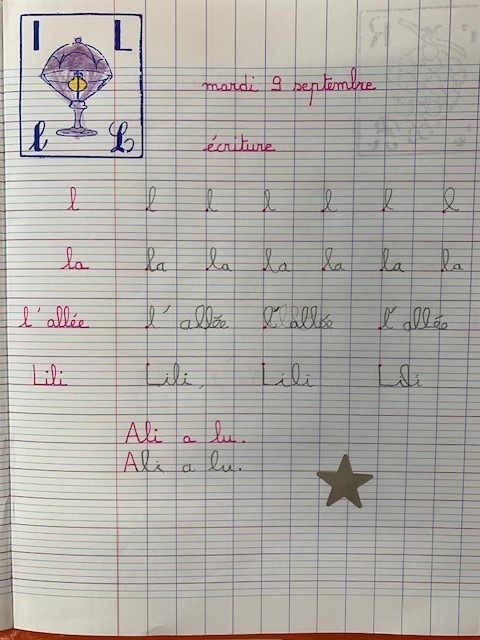 l L
l L
mardi 9 septembre
écriture
l l l l l l l
la la la la la la la
l'allée l'allée l'allée l'allée
Lili Lili Lili Lili
Ali a lu.
Ali a lu.